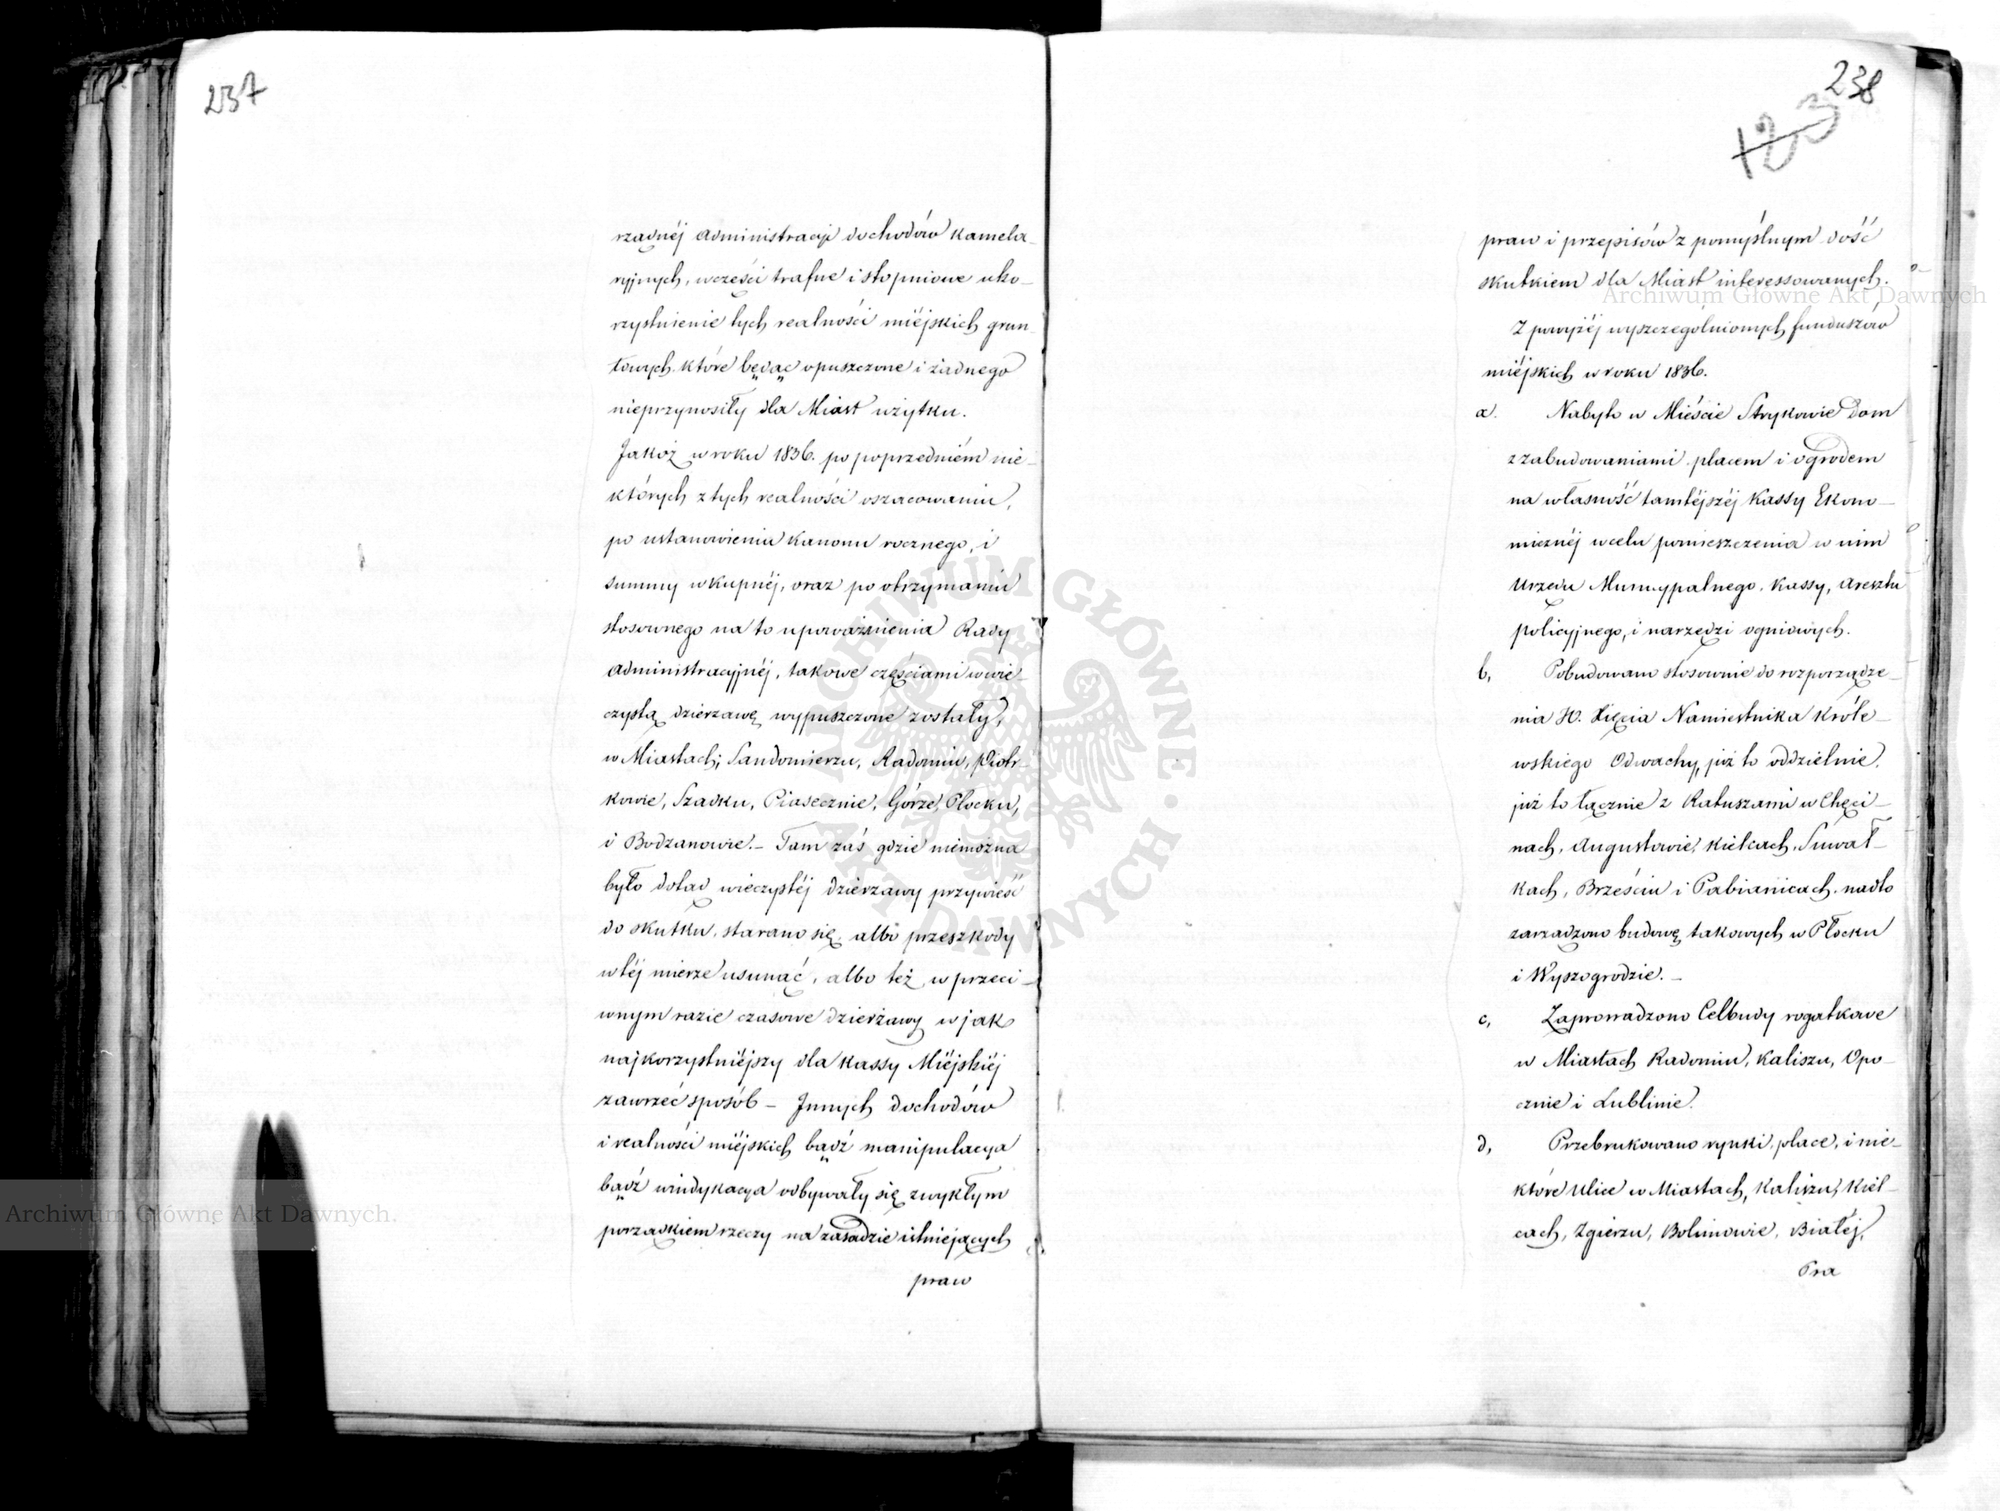 237
rządnéj Administracyi dochodów Kamela-
ryjnych, w części trafne i stopniowe uko-
rzystnienie tych realności miéjskich grun
towych które będąc opuszczone i żadnego
nieprzynosiły dla Miast użytku.
Jakóż w roku 1836. po poprzedniém nie-
których z tych realności oszacowaniu,
po ustanowieniu Kanonu rocznego, i
summy wkupnéj, oraz po otrzymaniu
stosownego na to upoważnienia Rady
Administracyjnéj, takowe częściami w wie-
czystą dzierżawę wypuszczone zostały,
w Miastach; Sandomierzu, Radomiu, Piotr-
kowie, Szadku, Piasecznie, Górze, Płocku,
i Bodzanowie. – Tam zaś gdzie niemożna
było dotąd wieczystéj dzierzawy przywieść
do skutku, starano się albo przeszkody
w téj mierze usunąć, albo też w przeci-
wnym razie czasowe dzierżawy w jak
najkorzystniéjszy dla Kassy Miéjskiéj
zawrzeć sposób – Innych dochodów
i realności miéjskich bądź manipulacya
bądź windykacya odbywały się zwykłym
porządkiem rzeczy na zasadzie istniejących
praw
238
123
praw i przepisów z pomyślnym dość
skutkiem dla Miast interessowanych.
Z powyżéj wyszczególnionych funduszów
miéjskich w roku 1836.
a. Nabyto w Mieście Strykowie Dom
z zabudowaniami placem i ogrodem
na własność tamtéjszéj Kassy Ekono-
micznéj w celu pomieszczenia w nim
Urzędu Municypalnego, Kassy, Aresztu
policyjnego, i narzędzi ogniowych.
b, Pobudowano stosownie do rozporządze-
nia JO. Xięcia Namiestnika Króle-
wskiego Odwachy, już to oddzielnie,
już to łącznie z Ratuszami w Chęci-
nach, Augustowie, Kielcach, Suwał-
kach, Brześciu i Pabianicach. nadto
zarządzono budowę takowych w Płocku
i Wyszogrodzie. –
c, Zaprowadzono Celbudy rogatkowe
w Miastach Radomiu, Kaliszu, Opo-
cznie i Lublinie.
d, Przebrukowano rynki, place, i nie-
które Ulice w Miastach, Kaliszu, Kiel-
cach, Zgierzu, Bolimowie, Białéj,
Pra
Archiwum Główne Akt Dawnych
Archiwum Główne Akt Dawnych.
ARCHIWUM GŁÓWNE AKT DAWNYCH